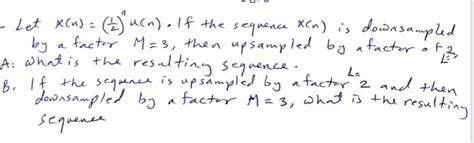 - Let X(n) = (1/2)^n u(n). If the sequence X(n) is downsampled
by a factor M=3, then upsampled by a factor of 2
L=
A: what is the resulting sequence.
L=
B. If the sequence is upsampled by a factor 2 and then
downsampled by a factor M=3, what is the resulting
sequence